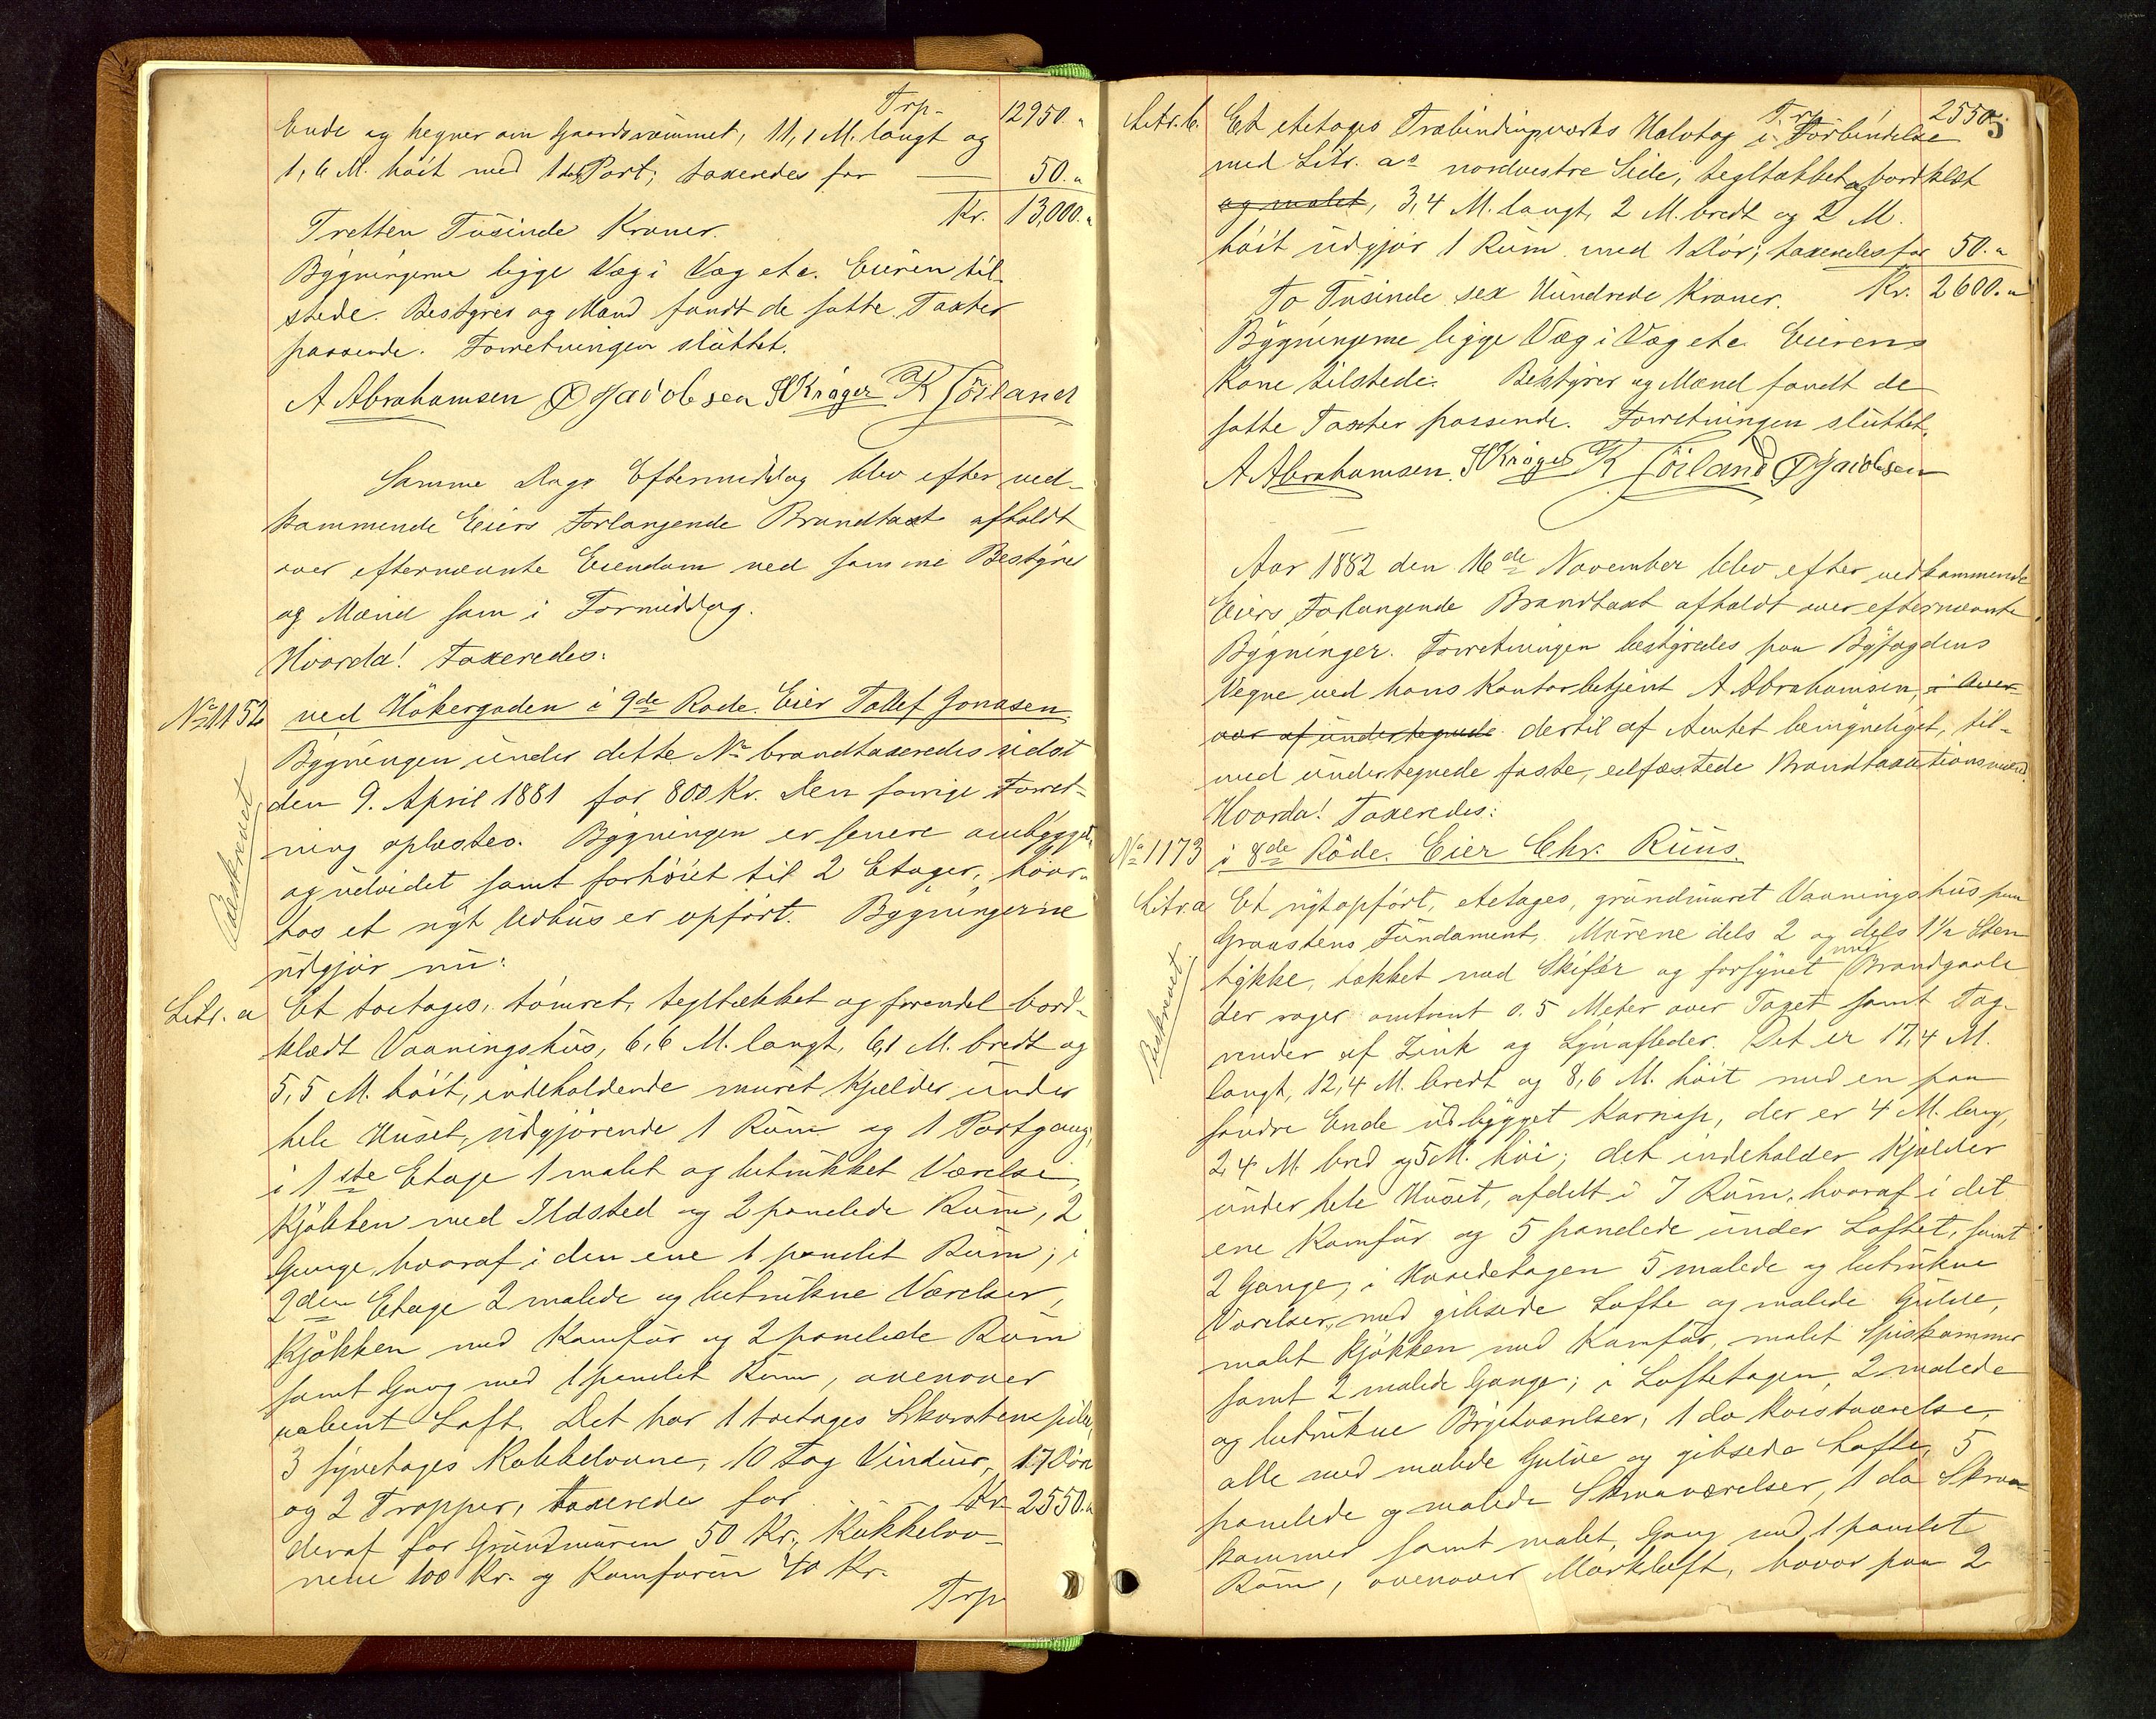 Trp. 12950.„
Ende og hegner om Gaardsrummet, 11,1 M. langt og
1,6 M. höit med 1 do Port; taxeredes for — 50.„
Tretten Tusinde Kroner. Kr. 13,000.„
Bygningerne ligge Væg i Væg etc. Eieren til-
stede. Bestyrer og Mænd fandt de satte Taxter
passende. Forretningen sluttet.
A Abrahamsen O Jacobsen H Kröger K Töiland
Samme Dags Eftermiddag blev efter ved-
kommende Eiers Forlangende Brandtaxt afholdt
over efternævnte Eiendom ved samme Bestyrer
og Mænd som i Formiddag.
Hvorda! Taxeredes:
No 1152 ved Hökergaden i 9de Rode. Eier Tollef Jonasen.
Bygningen under dette No brandtaxeredes sidst
den 9. April 1881 for 800 Kr. Den forrige Forret-
ning oplæstes. Bygningen er senere ombygget
og udvidet samt forhöiet til 2 Etager, hvor-
hos et nyt Udhus er opfört. Bygningerne
udgjör nu:
Beskrevet
Litr. a Et toetages, tömret, tegltækket og forendel bord-
klædt Vaaningshus, 6,6 M. langt, 6,1 M. bredt og
5,5 M. höit, indeholdende muret Kjælder under
hele Huset, udgjörende 1 Rum og 1 Portgang,
i 1ste Etage 1 malet og betrukket Værelse,
Kjökken med Ildsted og 2 panelede Rum, 2
Gange, hvoraf i den ene 1 panelet Rum; i
2den Etage 2 malede og betrukne Værelser,
Kjökken med Komfur og 2 panelede Rum
samt Gang med 1 panelet Rum, ovenover
uabent Loft. Det har 1 toetages Skorstenspibe,
3 syvetages Kakkelovne, 10 Fag Vinduer, 17 Döre
og 2 Trapper, taxeredes for Kr. 2550.„
deraf for Grundmuren 50 Kr., Kakkelov-
nene 100 Kr. og Komfuren 40 Kr.
Trp
Trp. 2550.„
5
Litr. b. Et etetages Træbindingsværks Halvtag i Forbindelse
med Litr. as nordvestre Side, tegltækket og bordklæt
og malet, 3,4 M. langt, 2 M. bredt og 2 M.
höit udgjör 1 Rum med 1 Dör; taxeredes for 50.„
To Tusinde sex Hundrede Kroner. Kr. 2600.„
Bygningerne ligge Væg i Væg etc. Eierens
Kone tilstede. Bestyrer og Mænd fandt de
satte Taxter passende. Forretningen sluttet.
A Abrahamsen. H Kröger K Töiland O Jacobsen
Aar 1882 den 16de November blev efter vedkommende
Eiers Forlangende Brandtaxt afholdt over efternævnte
Bygninger. Forretningen bestyredes paa Byfogdens
Vegne ved hans Kontorbetjent A Abrahamsen, i Over-
vær af undertegnede dertil af Amtet bemyndiget, til-
med undertegnede faste, edfæstede Brandtaxationsmænd.
Hvorda! Taxeredes:
No 1173 i 8de Rode. Eier Chr. Ruus.
Litr. a Et nyt opfört, etetages, grundmuret Vaaningshus paa
Graastens Fundament, Murene dels 2 og dels 1½ Sten
tykke, tækket med Skifer og forsynet med Brandgavle
der rager omtrent 0.5 Meter over Taget samt Tag-
render af Zink og Lynafleder. Det er 17,4 M.
Beskrevet
langt, 12,4 M. bredt og 8,6 M. höit med en paa
söndre Ende udbygget Karnap, der er 4 M. lang,
2,4 M. bred og 5 M. höi; det indeholder Kjælder
under hele Huset, afdelt i 7 Rum, hvoraf i det
ene Komfur og 5 panelede under Loftet, samt
2 Gange; i Hovedetagen 5 malede og betrukne
Værelser, med gibsede Lofte og malede Gulve,
malet Kjökken med Komfur, malet Spiskammer
samt 2 malede Gange; i Loftetagen, 2 malede
og betrukne Værelser, 1 do Kvistværelse,
alle med malede Gulve og gibsede Lofte, 5
panelede og malede Skraaværelser, 1 do Skraa
Kammer samt malet, Gang med 1 panelet
Rum, ovenover Mörkloft, hvor paa 2